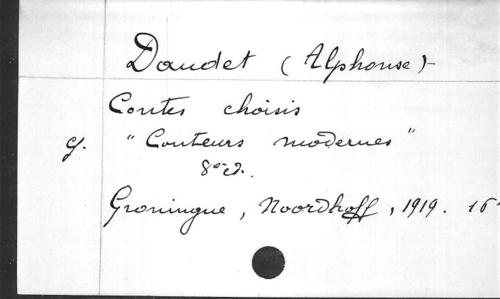 Daudet (Alphonse)-
Contes choisis
cf. "Conteurs modernes"
8e éd.
Groningue, Noordhoff, 1919. 16°